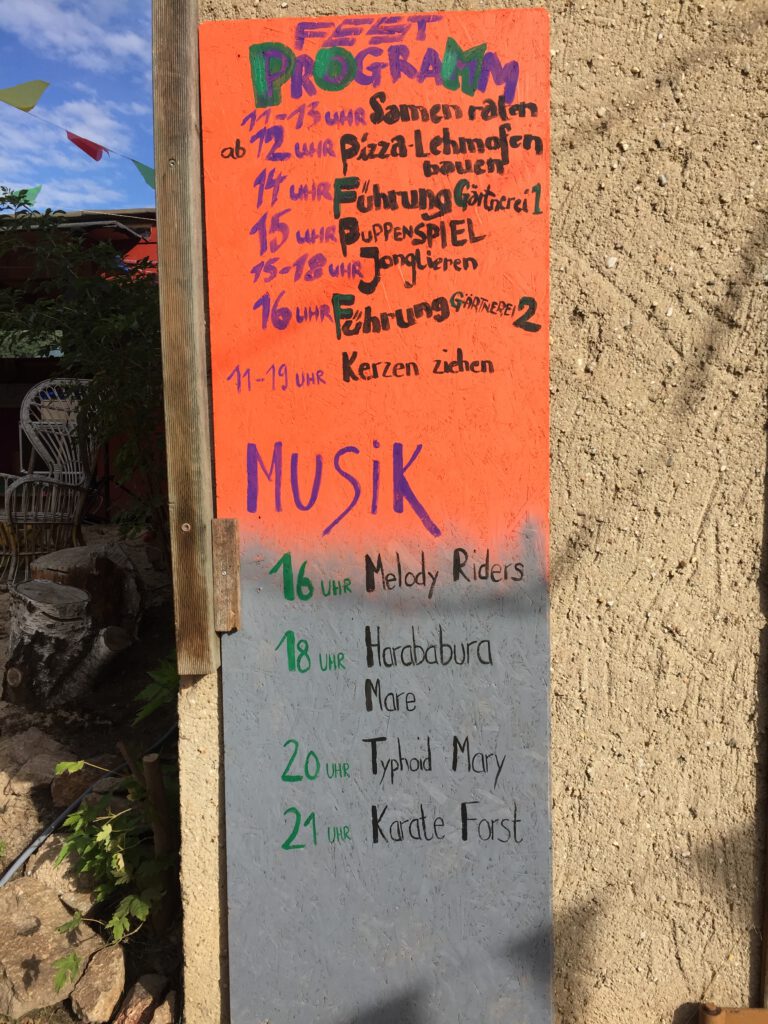 FEST
PROGRAMM
11-13 UHR Samen raten
ab 12 UHR Pizza-Lehmofen
bauen
14 UHR Führung Gärtnerei 1
15 UHR PUPPENSPIEL
15-18 UHR Jonglieren
16 UHR Führung GÄRTNEREI 2
11-19 UHR Kerzen ziehen
MUSiK
16 UHR Melody Riders
18 UHR Harababura
Mare
20 UHR Typhoid Mary
21 UHR Karate Forst